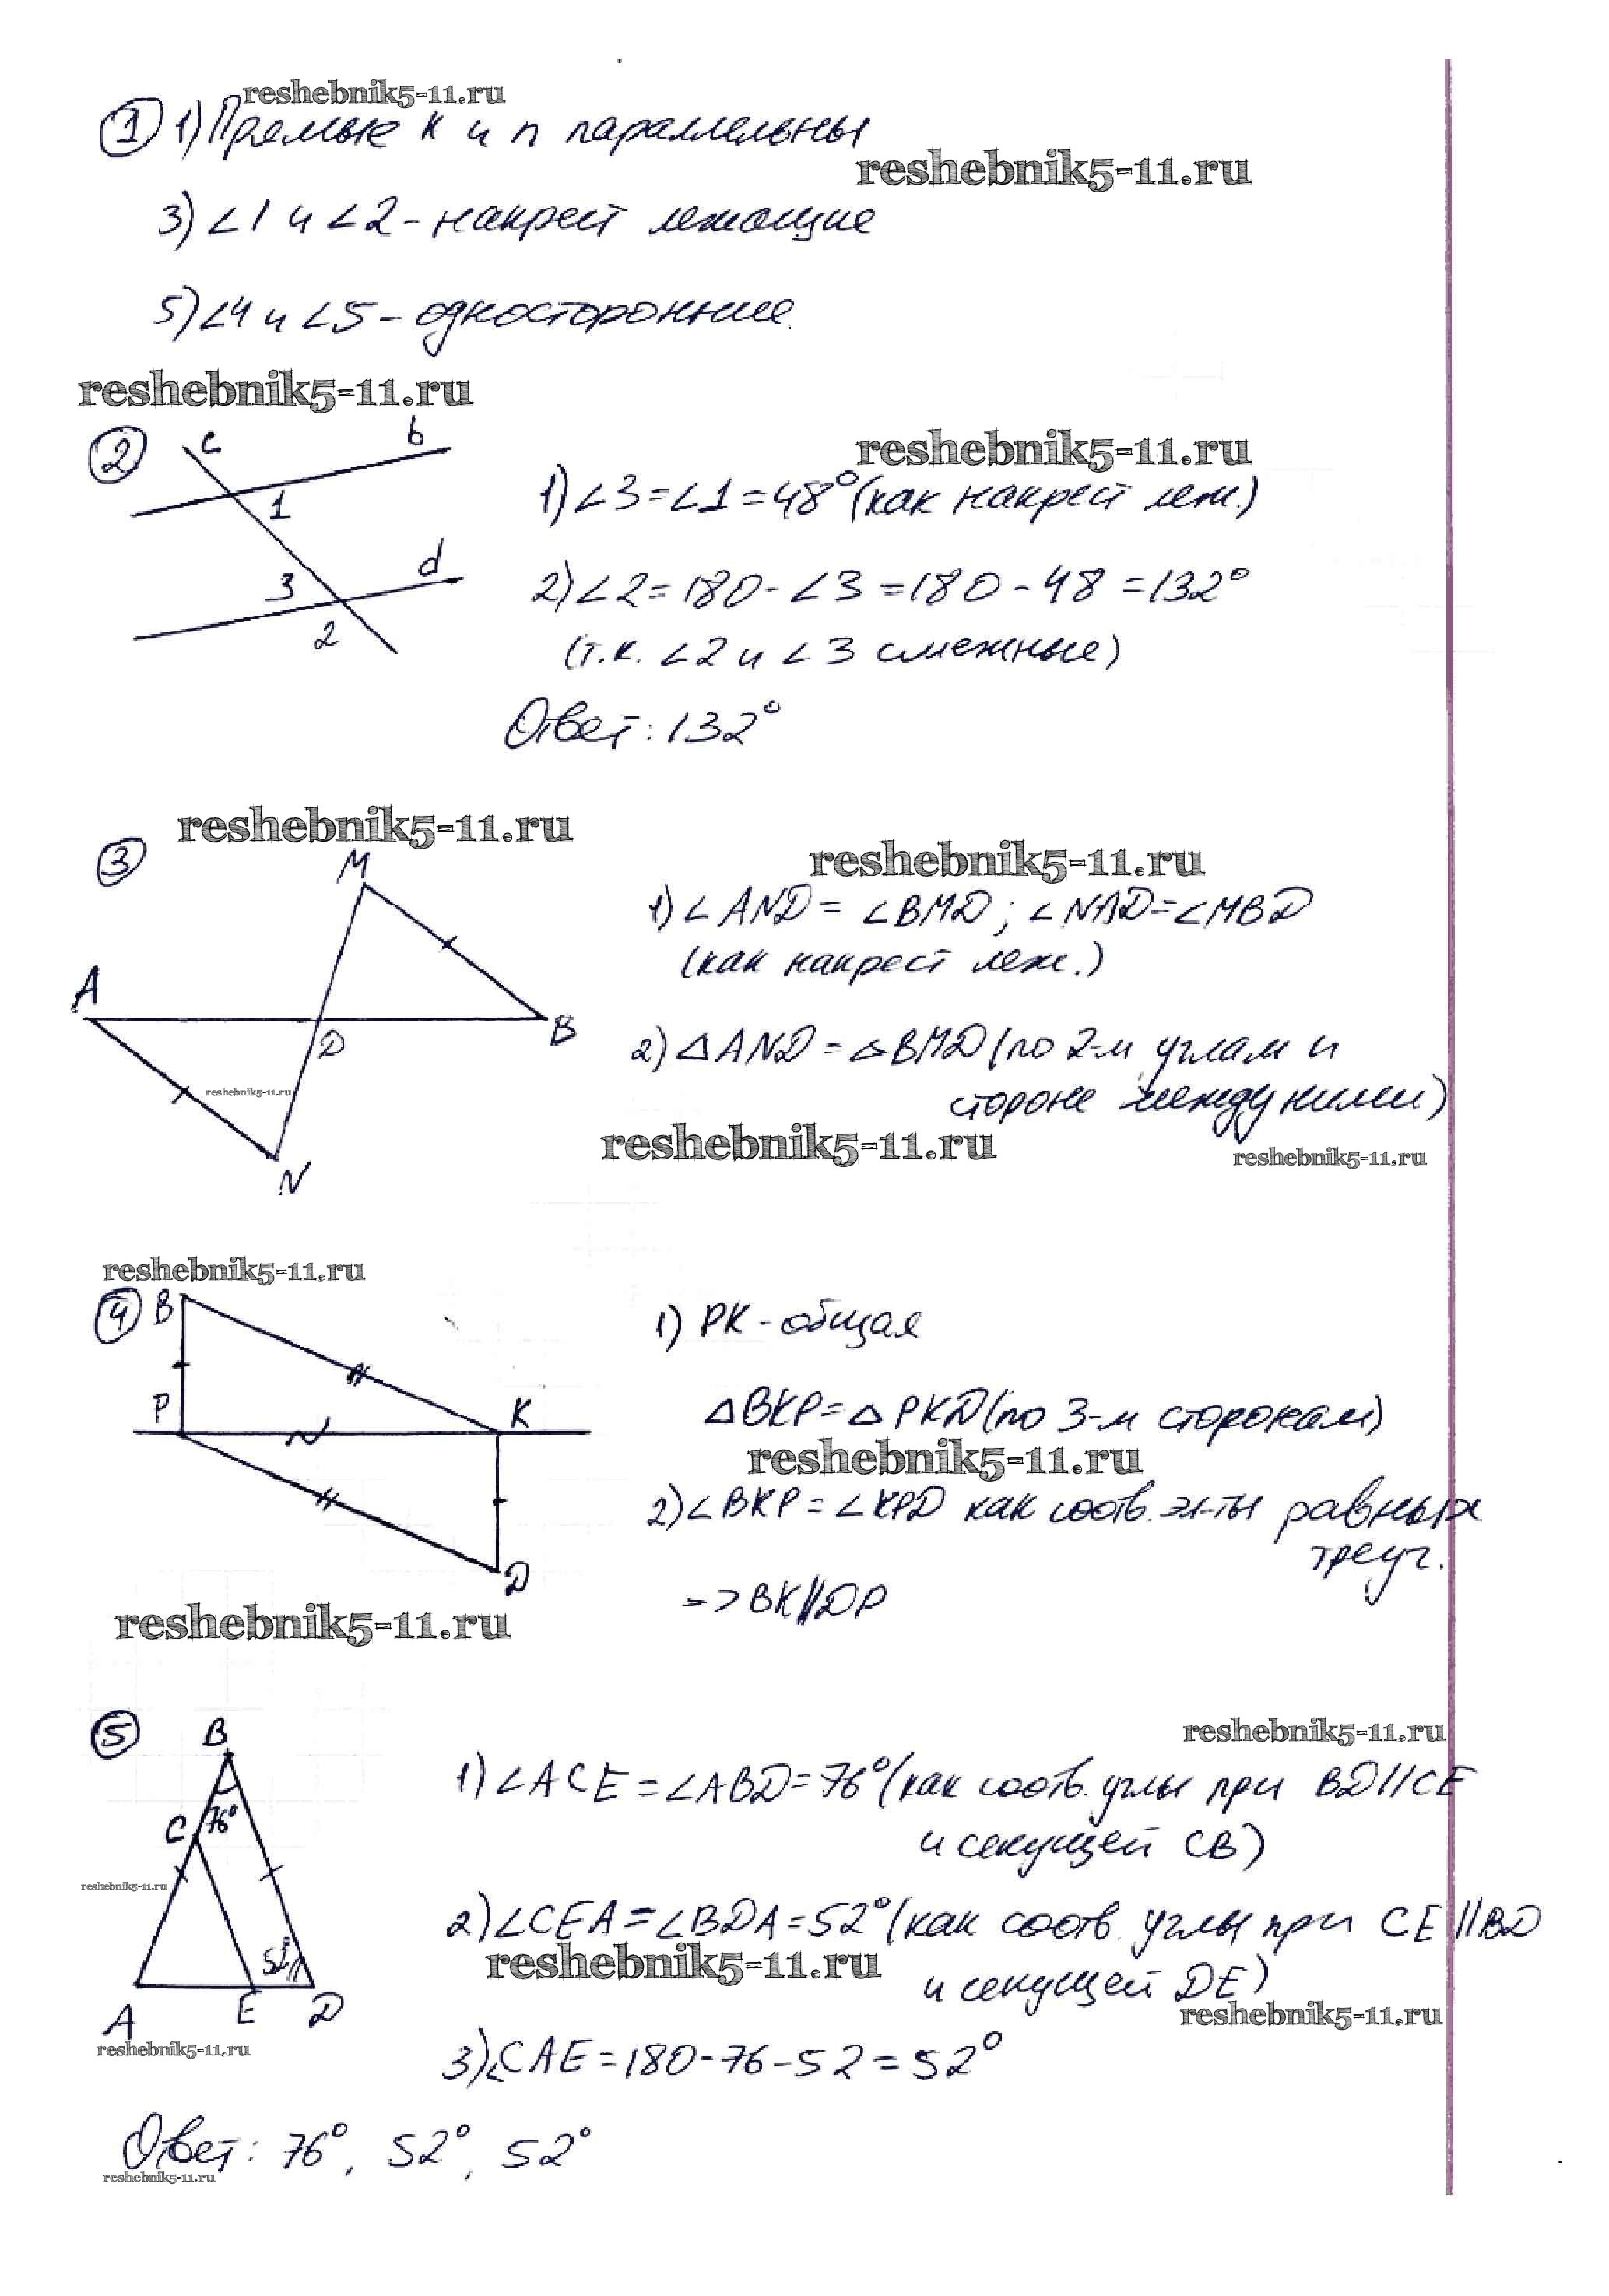 reshebnik5-11.ru
① 1) Прямые k и n параллельны
reshebnik5-11.ru
3) ∠1 и ∠2 - накрест лежащие
5) ∠4 и ∠5 - односторонние.
reshebnik5-11.ru
② c b
reshebnik5-11.ru
1
1) ∠3 = ∠1 = 48° (как накрест леж.)
d
3
2) ∠2 = 180 - ∠3 = 180 - 48 = 132°
2
(т.к. ∠2 и ∠3 смежные)
Ответ: 132°
reshebnik5-11.ru
③
M
reshebnik5-11.ru
1) ∠AND = ∠BMD; ∠NAD = ∠MBD
(как накрест леж.)
A
D
B
2) △AND = △BMD (по 2-м углам и
стороне между ними)
reshebnik5-11.ru
reshebnik5-11.ru
reshebnik5-11.ru
N
reshebnik5-11.ru
④ B
1) PK - общая
P
K
△BKP = △PKD (по 3-м сторонам)
reshebnik5-11.ru
2) ∠BKP = ∠KPD как соотв. эл-ты равных
треуг.
D
=> BK || DP
reshebnik5-11.ru
⑤ B
reshebnik5-11.ru
1) ∠ACE = ∠ABD = 76° (как соотв. углы при BD || CE
и секущей CB)
C 76°
reshebnik5-11.ru
2) ∠CEA = ∠BDA = 52° (как соотв. углы при CE || BD
reshebnik5-11.ru
52°
и секущей DE)
A E D
reshebnik5-11.ru
reshebnik5-11.ru
3) ∠CAE = 180 - 76 - 52 = 52°
Ответ: 76°, 52°, 52°
reshebnik5-11.ru